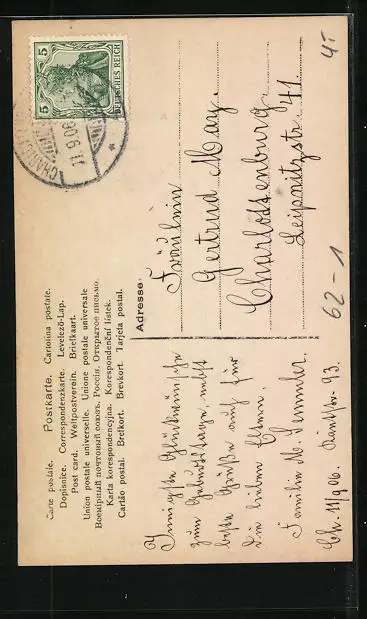 Carte postale. Postkarte. Cartolina postale.
Dopisnice. Correspondenzkarte. Levelező-Lap.
Post card. Weltpostverein. Briefkaart.
Union postale universelle. Unione postale universale
Всемірный почтовый союзъ. Россія. Открытое письмо.
Karta korespondencyjna. Korespondenční lístek.
Cartão postal. Brefkort. Brevkort. Tarjeta postal.
Innigste Glückwünsche
zum Geburtstage, nebst
beste Grüße auch für
Die lieben Eltern.
Familie M.
Ch. 11/9 06. 93.
Adresse:
Fräulein
Gertrud May.
Charlottenburg.
Leipnitzstr. 41.
5 5
DEUTSCHES REICH
11.9.06
62-1
4,-